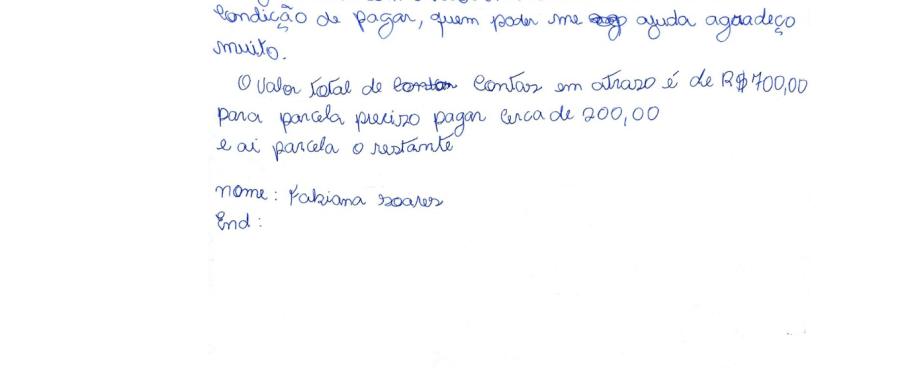 condição de pagar, quem poder me ajuda agradeço
muito.
O valor total de contar contas em atraso é de R$700,00
para parcela preciso pagar cerca de 200,00
e ai parcela o restante
nome: Fabiana soares
End: